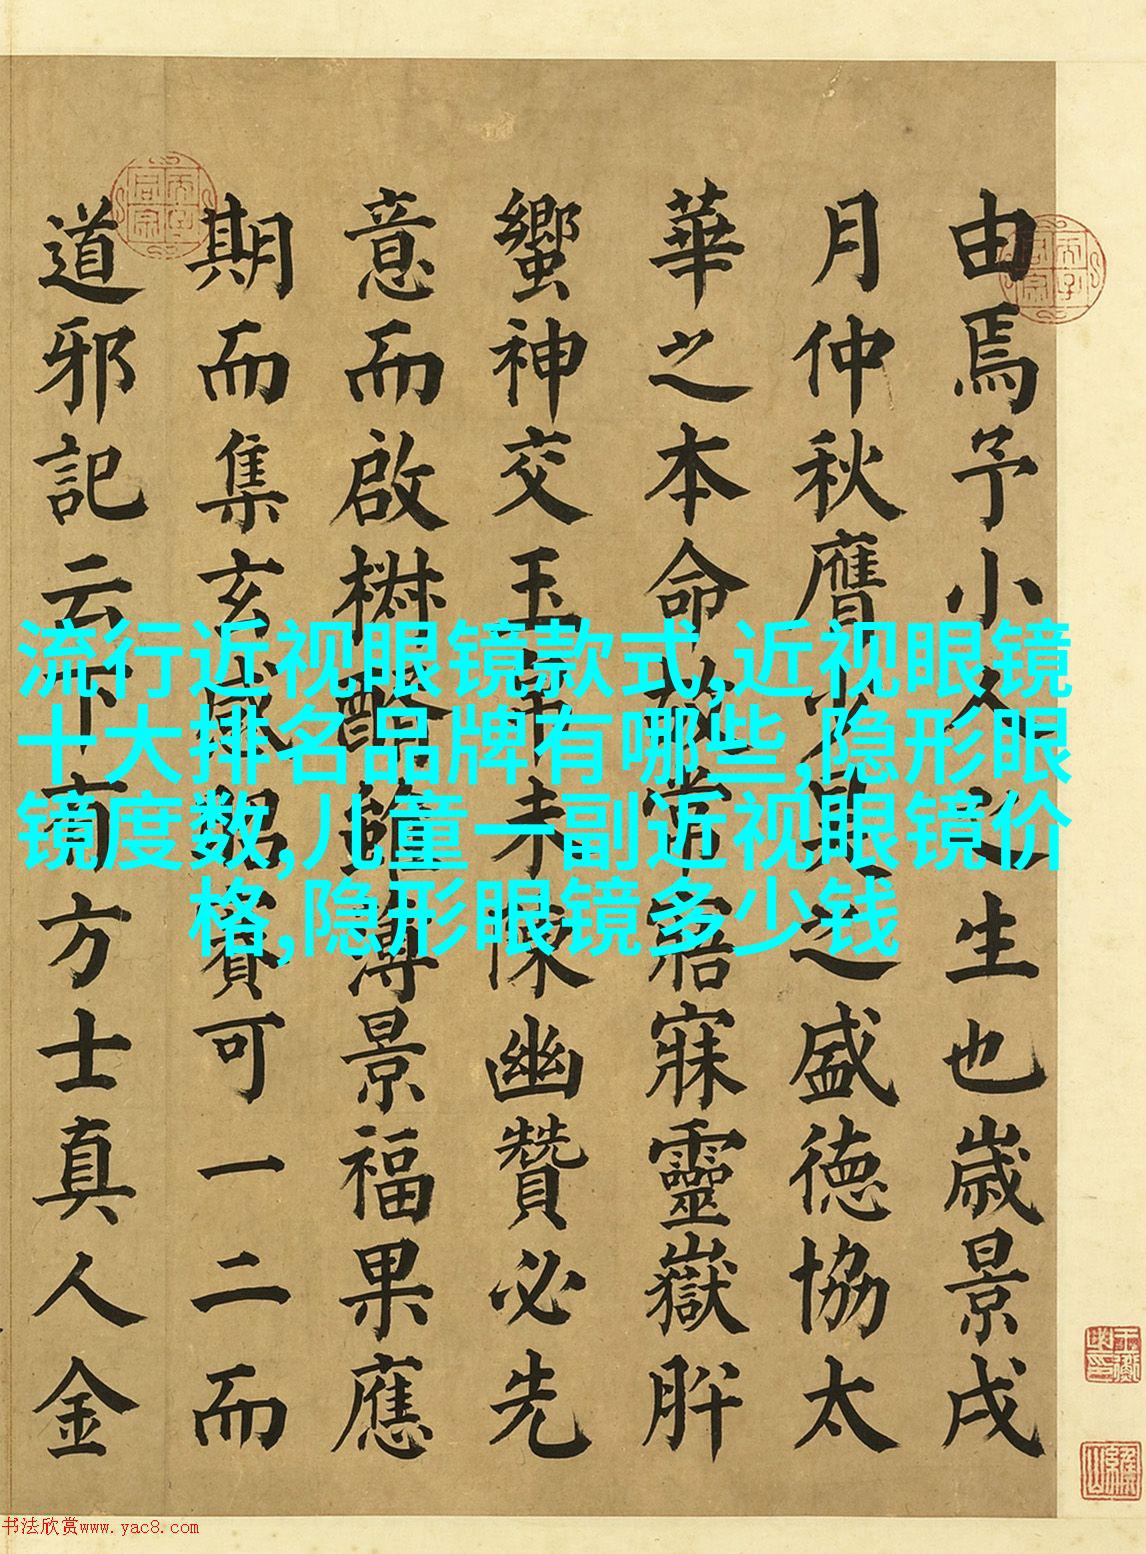 由焉予小久之生也歲景戌
月仲秋膺少昊之盛德協太
華之本命故常寤寐靈嶽肸
蠁神交玉帛未陳幽贊必先
意而啟椒醑雖薄景福果應
期而集玄感昭賓可一二而
道邪記云下有方士真人金
流行近视眼镜款式,近视眼镜
十大排名品牌有哪些,隐形眼
镜度数,儿童一副近视眼镜价
格,隐形眼镜多少钱
书法欣赏www.yac8.com